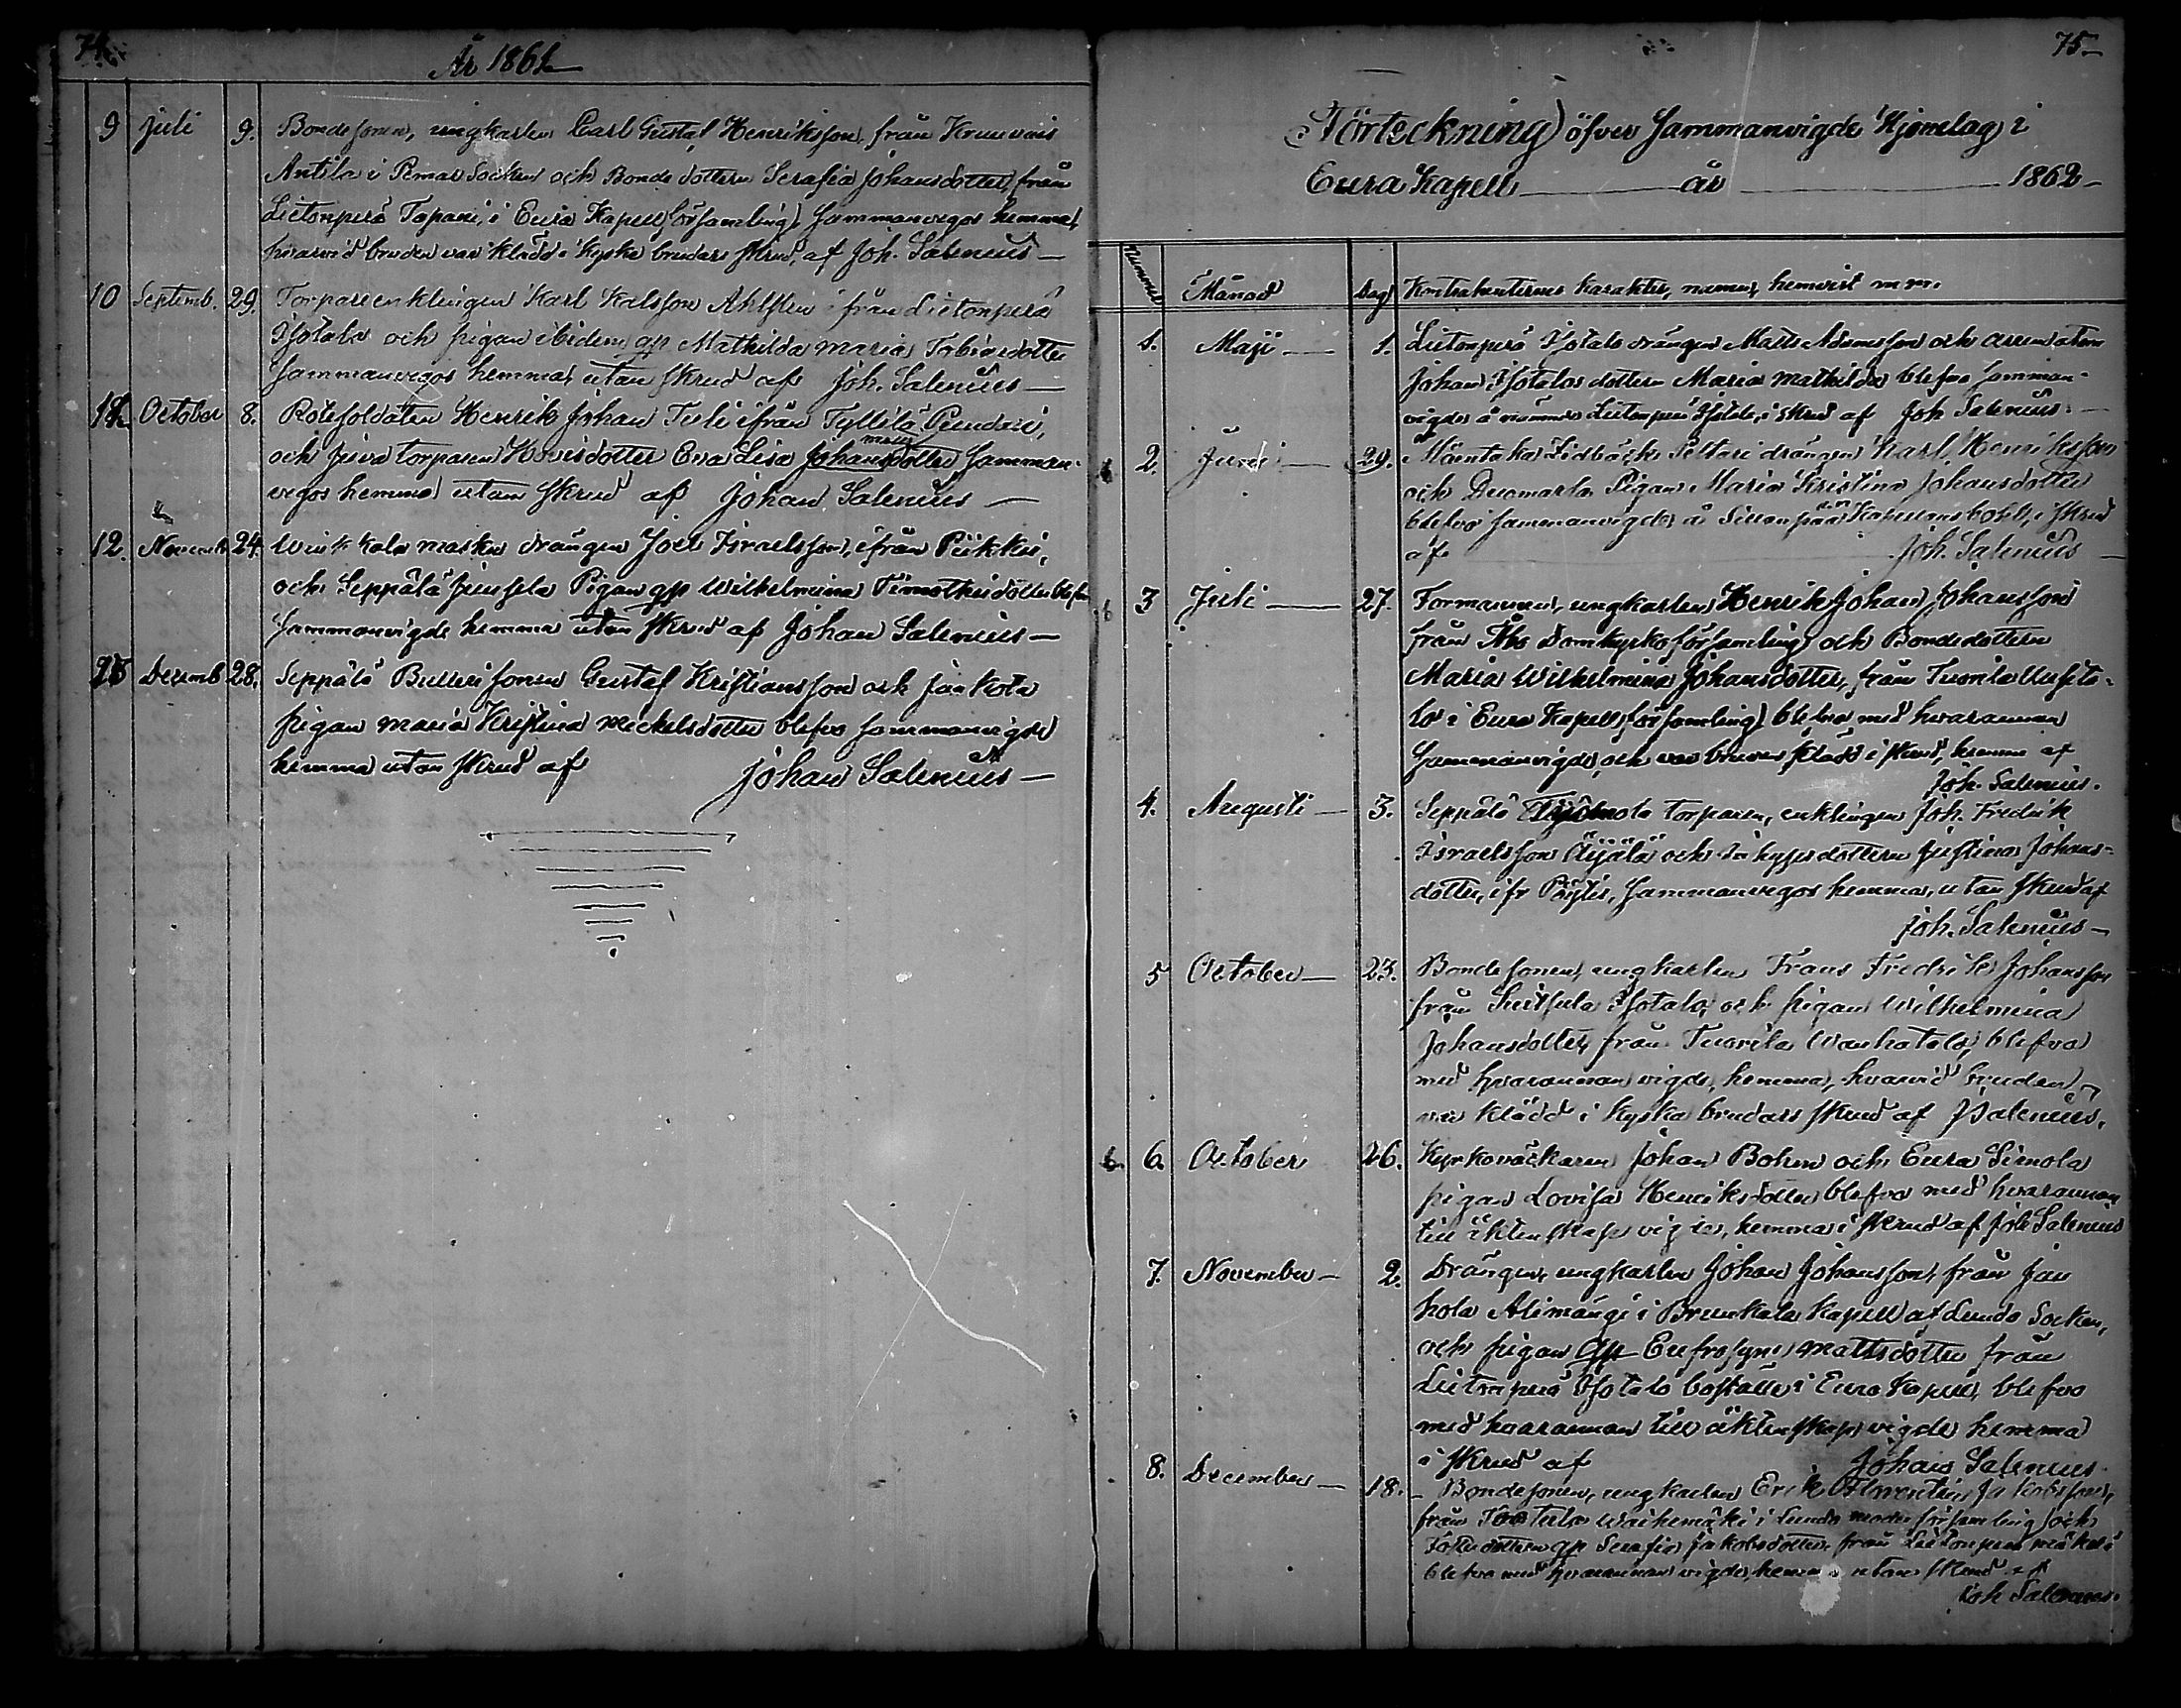 74.
År 1861
9 juli 9. Bondesonen, ungkarlen Carl Gustaf Henriksson från
Antila i Pemar Socken och Bonde dottren Serafia Johansdotter, från
Lietonperä Tapani, i Eura Kapellförsamling, Sammanvigos hemma,
hvarvid bruden var klädd i kyska brudars skrud, af Joh. Salenius —
10 Septemb. 29. Torpareenklingen Karl Kalsson Ahlsten ifrån Lietonperä
Isotalo och pigan ibidem gp Mathilda Maria Tobiasdotter
Sammanvigos hemma, utan skrud af Joh. Salenius —
11. October 8. Rotesoldaten Henrik Johan Tuli ifrån Tyllilä
och torparen Eva Lisa Johansdotter Samman-
vigos hemma utan skrud af Johan Salenius —
12. Novemb 24. drängen Joel Israelsson, ifrån Piikkis,
och Seppälä Junsela Pigan gp Wilhelmina Timotheidotter blefvo
Sammanvigde hemma utan skrud af Johan Salenius —
13 Decemb 28. Seppälä sonen Gustaf Kristiansson och Jaakola
pigan Maria Kristina Mickelsdotter blefvo sammanvigde
hemma utan skrud af
Johan Salenius —
75—
Förteckning öfver Sammanvigde Hjonelag i
Eura Kapell — år — 1862 —
Nummer Månad Dag Kontrahenternes karakter, namn, hemvist m.m.
1. Maji — 1. Lietonperä Isotalo drängen Matts Adamsson och arrendatorn
Johan Isotalos dottern Maria Mathilda blefvo Samman-
vigde å nämnde Lietonperä Isotalo, i skrud af Joh Salenius. —
2. Juni — 29. drängen Karl Henriksson
och Pigan Maria Kristina Johansdotter
blefvo Sammanvigde, å Kapellans bohl, i skrud
af Joh. Salenius —
3 Juli — 27. Formannen, ungkarlen Henrik Johan Johansson
från Åbo Domkyrkoförsamling och Bondedottern
Maria Wilhelmina Johansdotter, från Tuorila Uusita-
lo i Eura Kapellförsamling, blefvo med hvarannan
Sammanvigde, och var bruden klädd i skrud, hemma af
Joh. Salenius.
4. Augusti — 3. Seppälä torparen, enklingen Joh. Fredrik
Israelsson Äijälä och Inhysesdottern Justina Johans-
dotter, ifr Pöytis, Sammanvigos hemma, utan skrud af
Joh. Salenius —
5 October — 23. Bondesonen, ungkarlen Frans Fredrik Johansson
från Isotalo, och pigan Wilhelmina
Johansdotter från Tuorila Wanhatalo, blefvo
med hvarannan vigde, hemma, hvarvid bruden
var klädd i kyska brudars skrud af J Salenius.
6. October 26. Kyrkoväktaren Johan Bohm och Eura Simola
pigan Lovisa Henriksdotter blefvo med hvarannan
till äktenskap vigde, hemma i skrud af Joh Salenius
7. November — 2. Drängen, ungkarlen Johan Johansson, från Jau
hola Alimängi i Brunkala Kapell af Lundo Socken,
och pigan gp Eufrosyne Mattsdotter från
Lietonperä Isotalo boställe i Eura Kapell, blefvo
med hvarannan till äktenskap vigde hemma
i skrud af Johan Salenius
8. December — 18. — Bondesonen, ungkarlen Erik Florentin Jakobsson,
från Waihemäki i Lundo moderförsamling och
dottren gp Serafia Jakobsdotter, från Lietonperä
blefvo med hvarannan vigde, hemma utan skrud af
Joh Salenius.